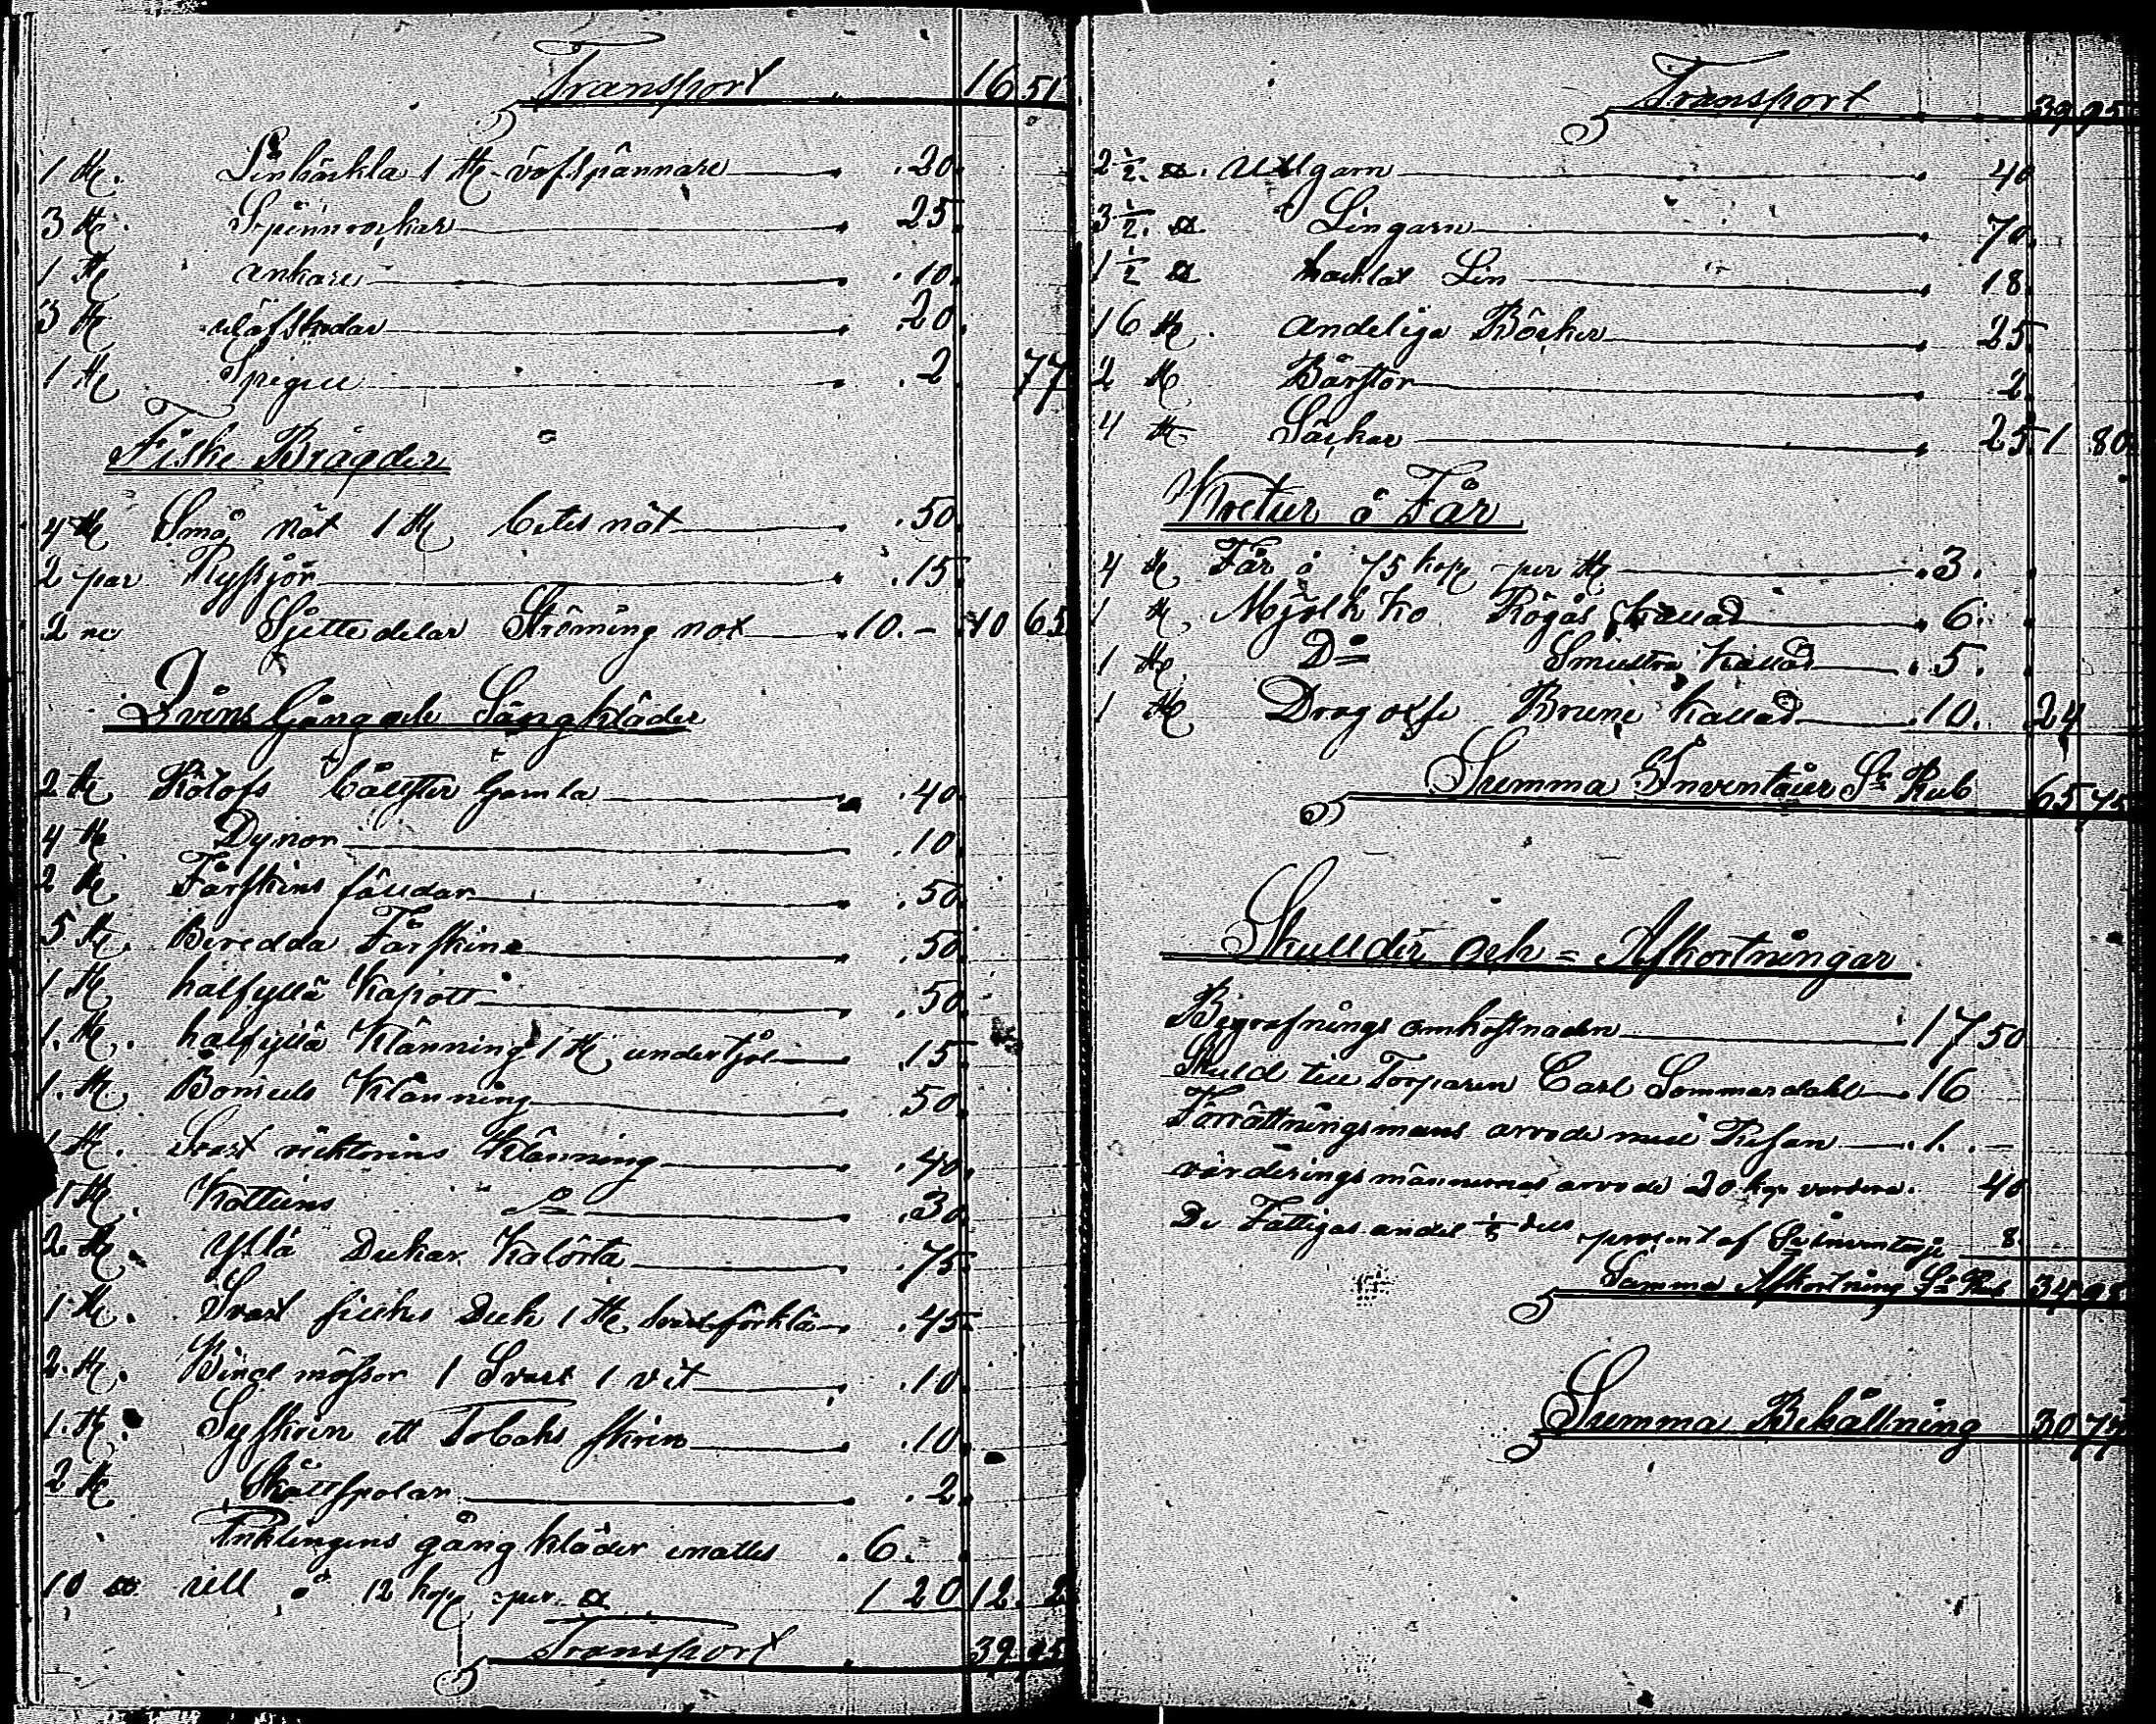 Transport 16 51
1 st. Linhäckla 1 st. väfspännare .20.
3 st. Spinnrockar 25
1 st ankare .10.
3 st väfskedar .20.
1 st Spegell .2 77
Fiske Brägder
4 st Små nät 1 st nät .50
2 par Rysjor .15
2 ne Sjettedelar Ströming not 10.- 10 65
Qvins Gång och Sängkläder
2 st Gamla .40
4 st. Dynor .10
2 st Fårskins fälldar .50
5 st. Beredda Fårskin .50
1 st halfyllä Kapott .50
1. st. halfyllä Klänning 1 st underkjol .15
1. st. Bomuls Klänning .50
1 st. Svart Klänning .40.
1 st. Kottuns Do .30
2 st. Yllä Dukar Kulörta .75
1 st. Svart silkes Duk 1 st förklä .45
2. st. Bind mössor 1 Svart 1 vit .10
1. st. Syskrin ett Tobaks skrin .10
2 st Skottspolar .2
Enklingens gångkläder .6.
10 ℔ ull å 12 kop per ℔ 1 20 12. 2
Transport 39 95
Transport 39 95
2 1/2. ℔. Ullgarn 40
3 1/2. ℔. Lingarn 70
1 1/2 ℔ häcklat Lin 18
16 st. andeliga Böcker 25
2 st Bårstor 2
4 st Säckar 25 1 80
Kretur å Får
4 st Får å 75 kop per st .3.
1 st Mjölk Ko Rögås Kallad 6.
1 st. Do Smultra Kallad .5.
1 st Drag oxe Brune Kallad .10. 24
Summa Inventarier Sr Rub 65 75
Skullder och = Afkortningar
Begrafnings omkostnaden 17 50
Skuld till Torparen Carl Sommardahl 16
Förrättningsmans arvode med Resan .1. —
värderingsmännernas arvode 20 kop vardera. 40
De Fattigas andel 1/8 dels procent af 8
Summa Afkortning Sr Rub 34 98
Summa Behållning 30 77